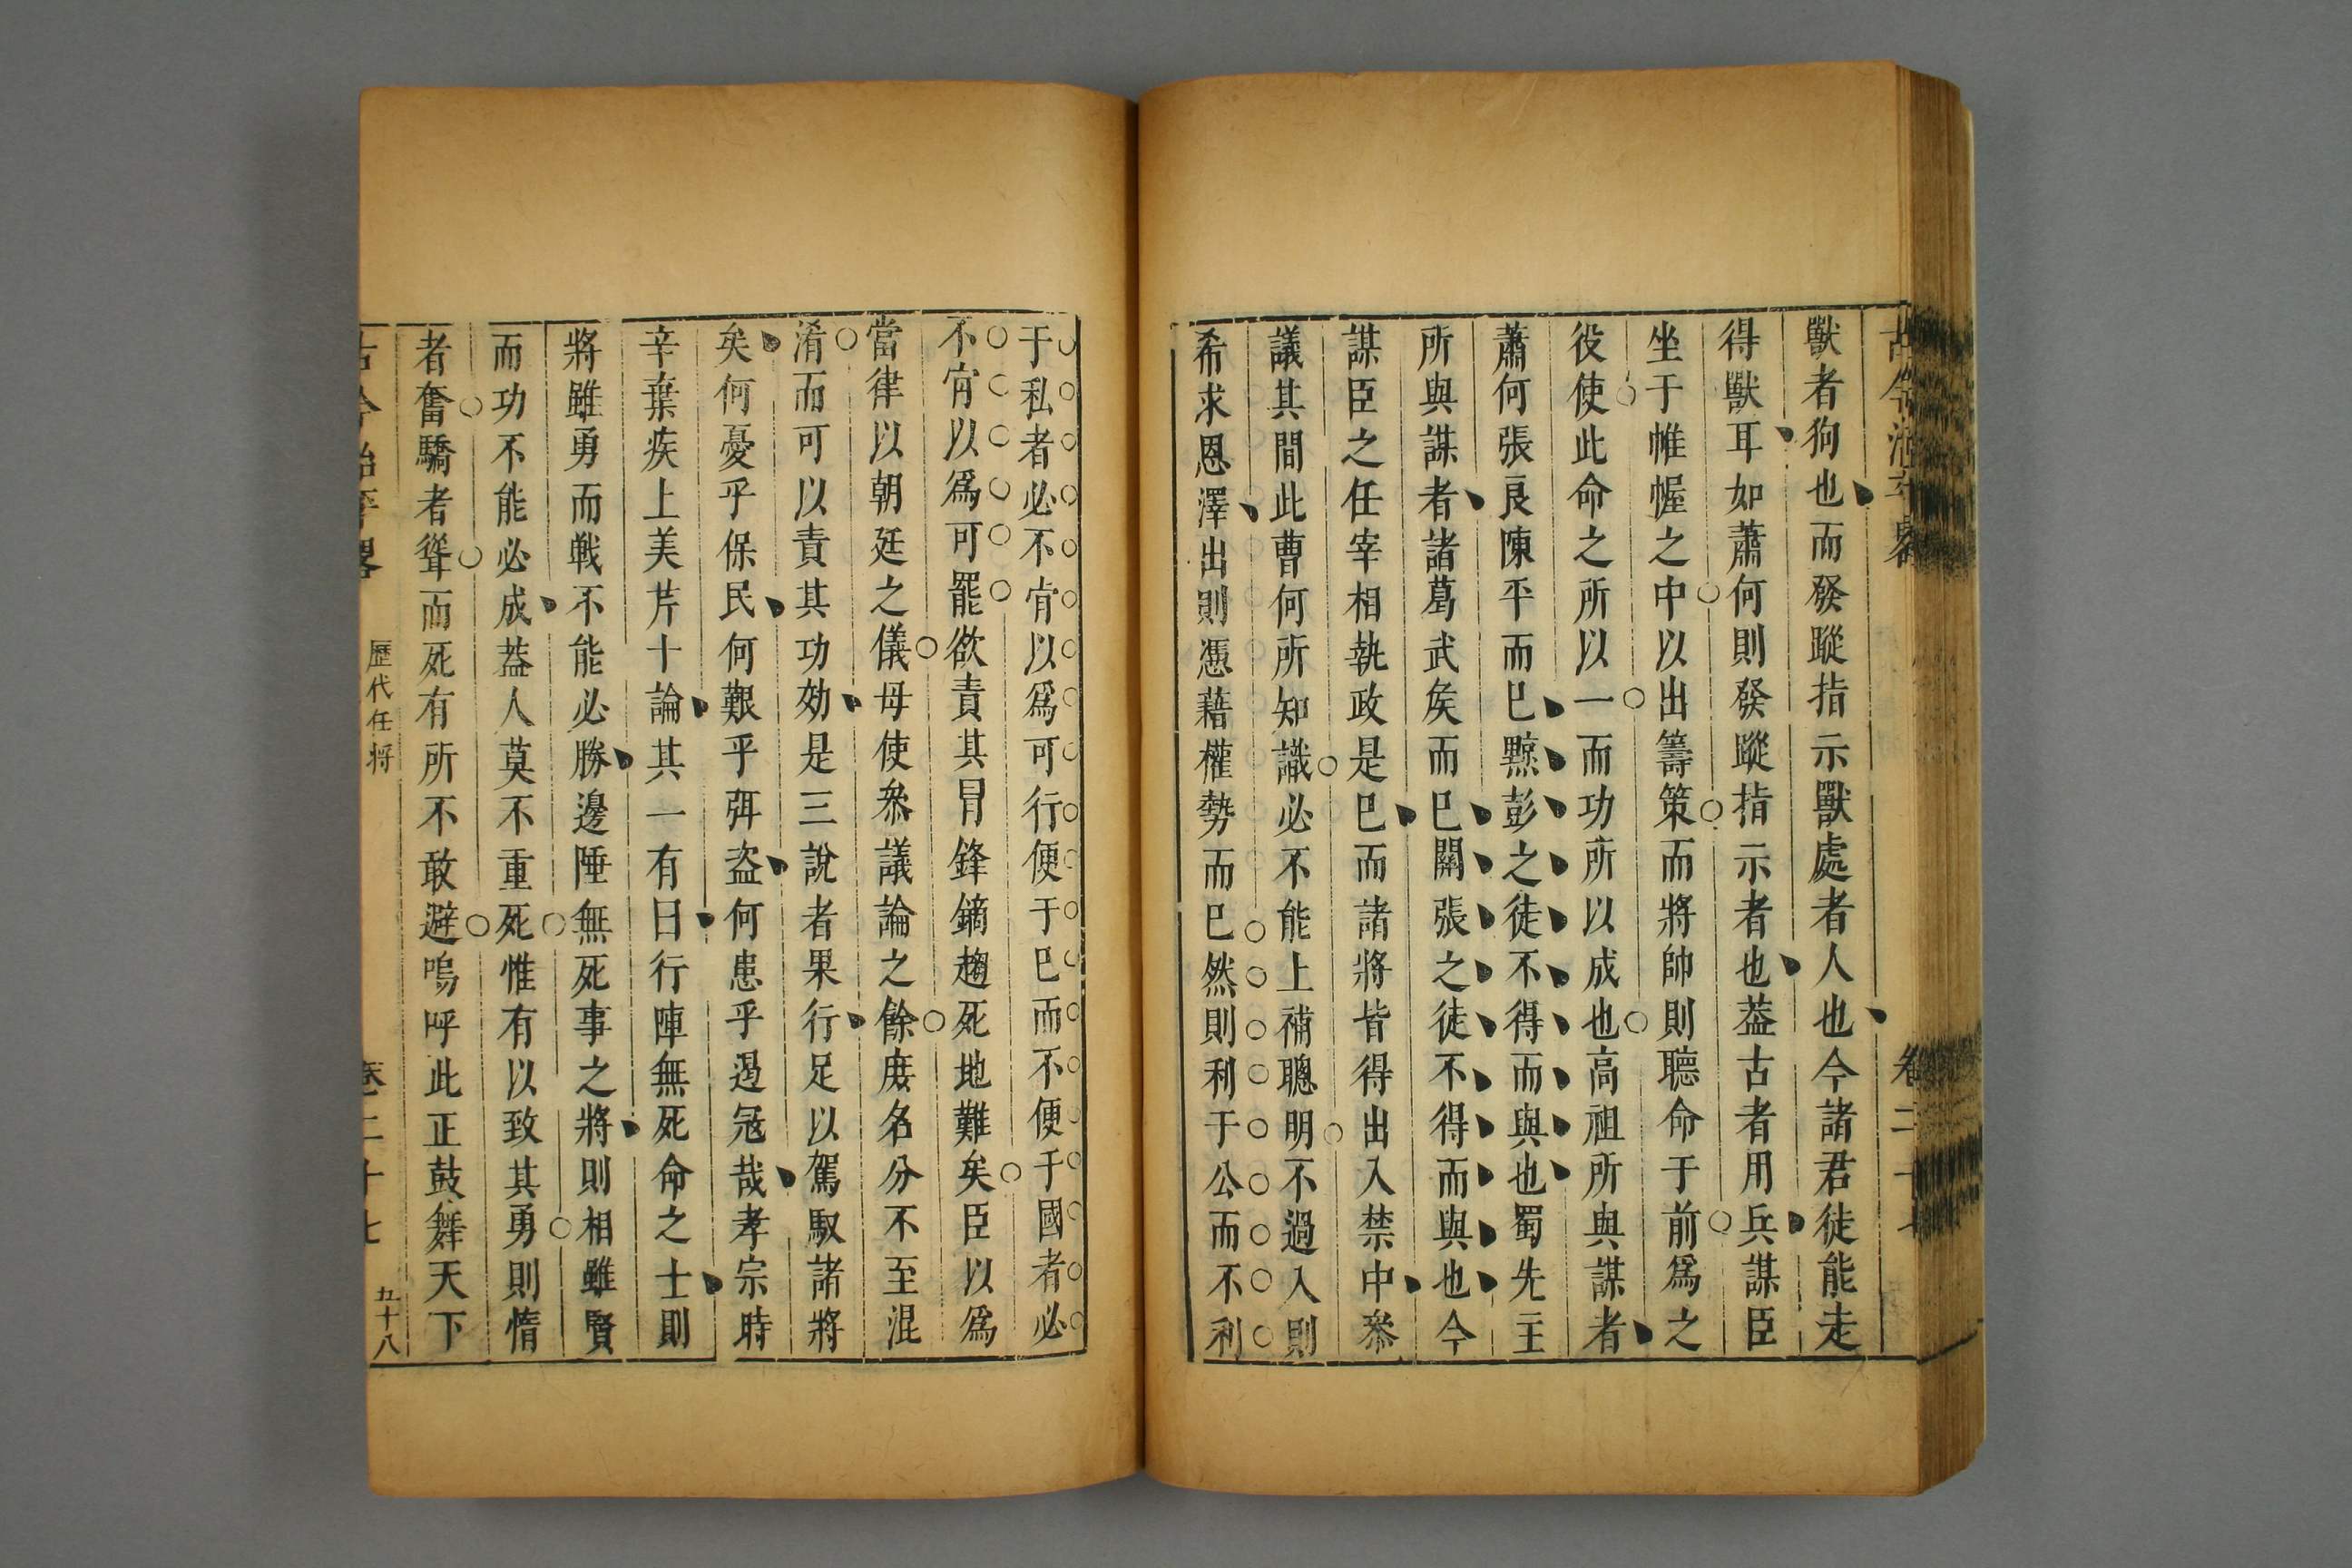 古今治平畧 卷二十七
獸者狗也而發蹤指示獸處者人也今諸君徒能走
得獸耳如蕭何則發蹤指示者也葢古者用兵謀臣
坐于帷幄之中以出籌策而將帥則聽命于前爲之
役使此命之所以一而功所以成也高祖所與謀者
蕭何張良陳平而已黥彭之徒不得而與也蜀先主
所與謀者諸葛武矦而已關張之徒不得而與也今
謀臣之任宰相執政是已而諸將皆得出入禁中叅
議其間此曹何所知識必不能上補聰明不過入則
希求恩澤出則憑藉權勢而已然則利于公而不利
于私者必不肯以爲可行便于已而不便于國者必
不肯以爲可罷欲責其冒鋒鏑趨死地難矣臣以爲
當律以朝廷之儀毋使叅議論之餘庻名分不至混
淆而可以責其功効是三說者果行足以駕馭諸將
矣何憂乎保民何艱乎弭盗何患乎遏冦哉孝宗時
辛棄疾上美芹十論其一有曰行陣無死命之士則
將雖勇而戰不能必勝邊陲無死事之將則相雖賢
而功不能必成葢人莫不重死惟有以致其勇則惰
者奮驕者聳而死有所不敢避嗚呼此正鼓舞天下
古今治平畧 歷代任將 卷二十七 五十八